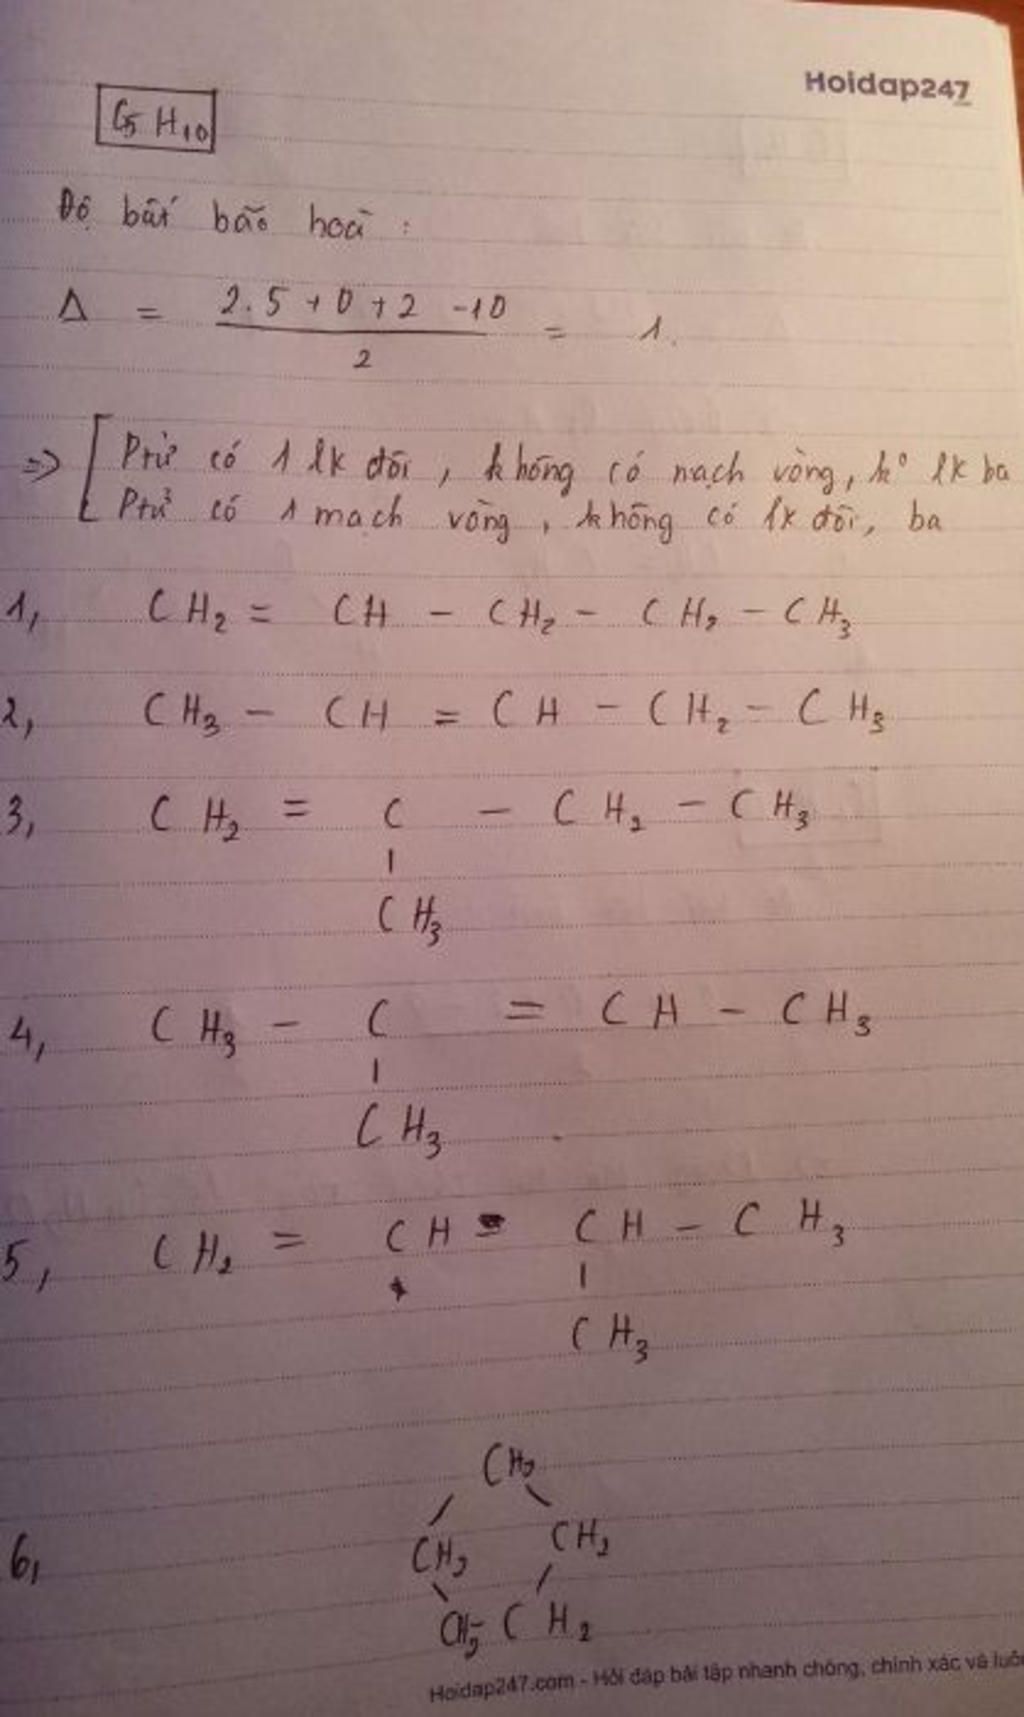 Hoidap247
C5 H10
Độ bất bão hoà :
Δ = 2.5 + 0 + 2 - 10 / 2 = 1.
=> [ Ptử có 1 lk đôi, không có mạch vòng, k° lk ba
Ptử có 1 mạch vòng, không có lk đôi, ba
1, CH2 = CH - CH2 - CH2 - CH3
2, CH3 - CH = CH - CH2 - CH3
3, CH2 = C - CH2 - CH3
|
CH3
4, CH3 - C = CH - CH3
|
CH3
5, CH2 = CH - CH - CH3
|
CH3
CH2
/ \
6, CH2 CH2
\ /
CH2 - CH2
Hoidap247.com - Hỏi đáp bài tập nhanh chóng, chính xác và luôn